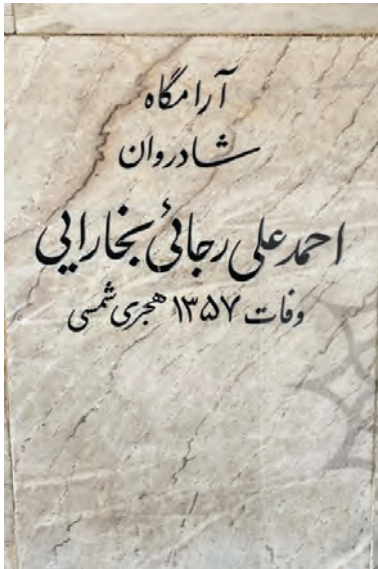 آرامگاه
شادروان
احمدعلی رجائی بخارایی
وفات ۱۳۵۷ هجری شمسی